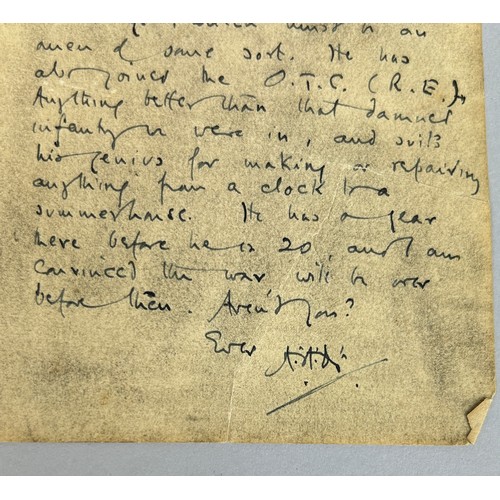 which must be an
amen of some sort. He has
also joined the O.T.C. (R.E.)
Anything better than that damned
infantry we were in, and suits
his genius for making or repairing
anything from a clock to a
summerhouse. He has a year
here before he is 20, and I am
convinced the war will be over
before then. Aren't you?
Ever